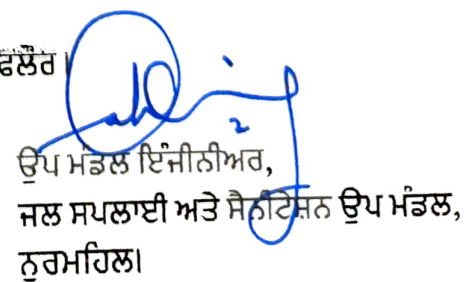 ਫਿਲੌਰ।
ਉਪ ਮੰਡਲ ਇੰਜੀਨੀਅਰ,
ਜਲ ਸਪਲਾਈ ਅਤੇ ਸੈਨੀਟੇਸ਼ਨ ਉਪ ਮੰਡਲ,
ਨੂਰਮਹਿਲ।